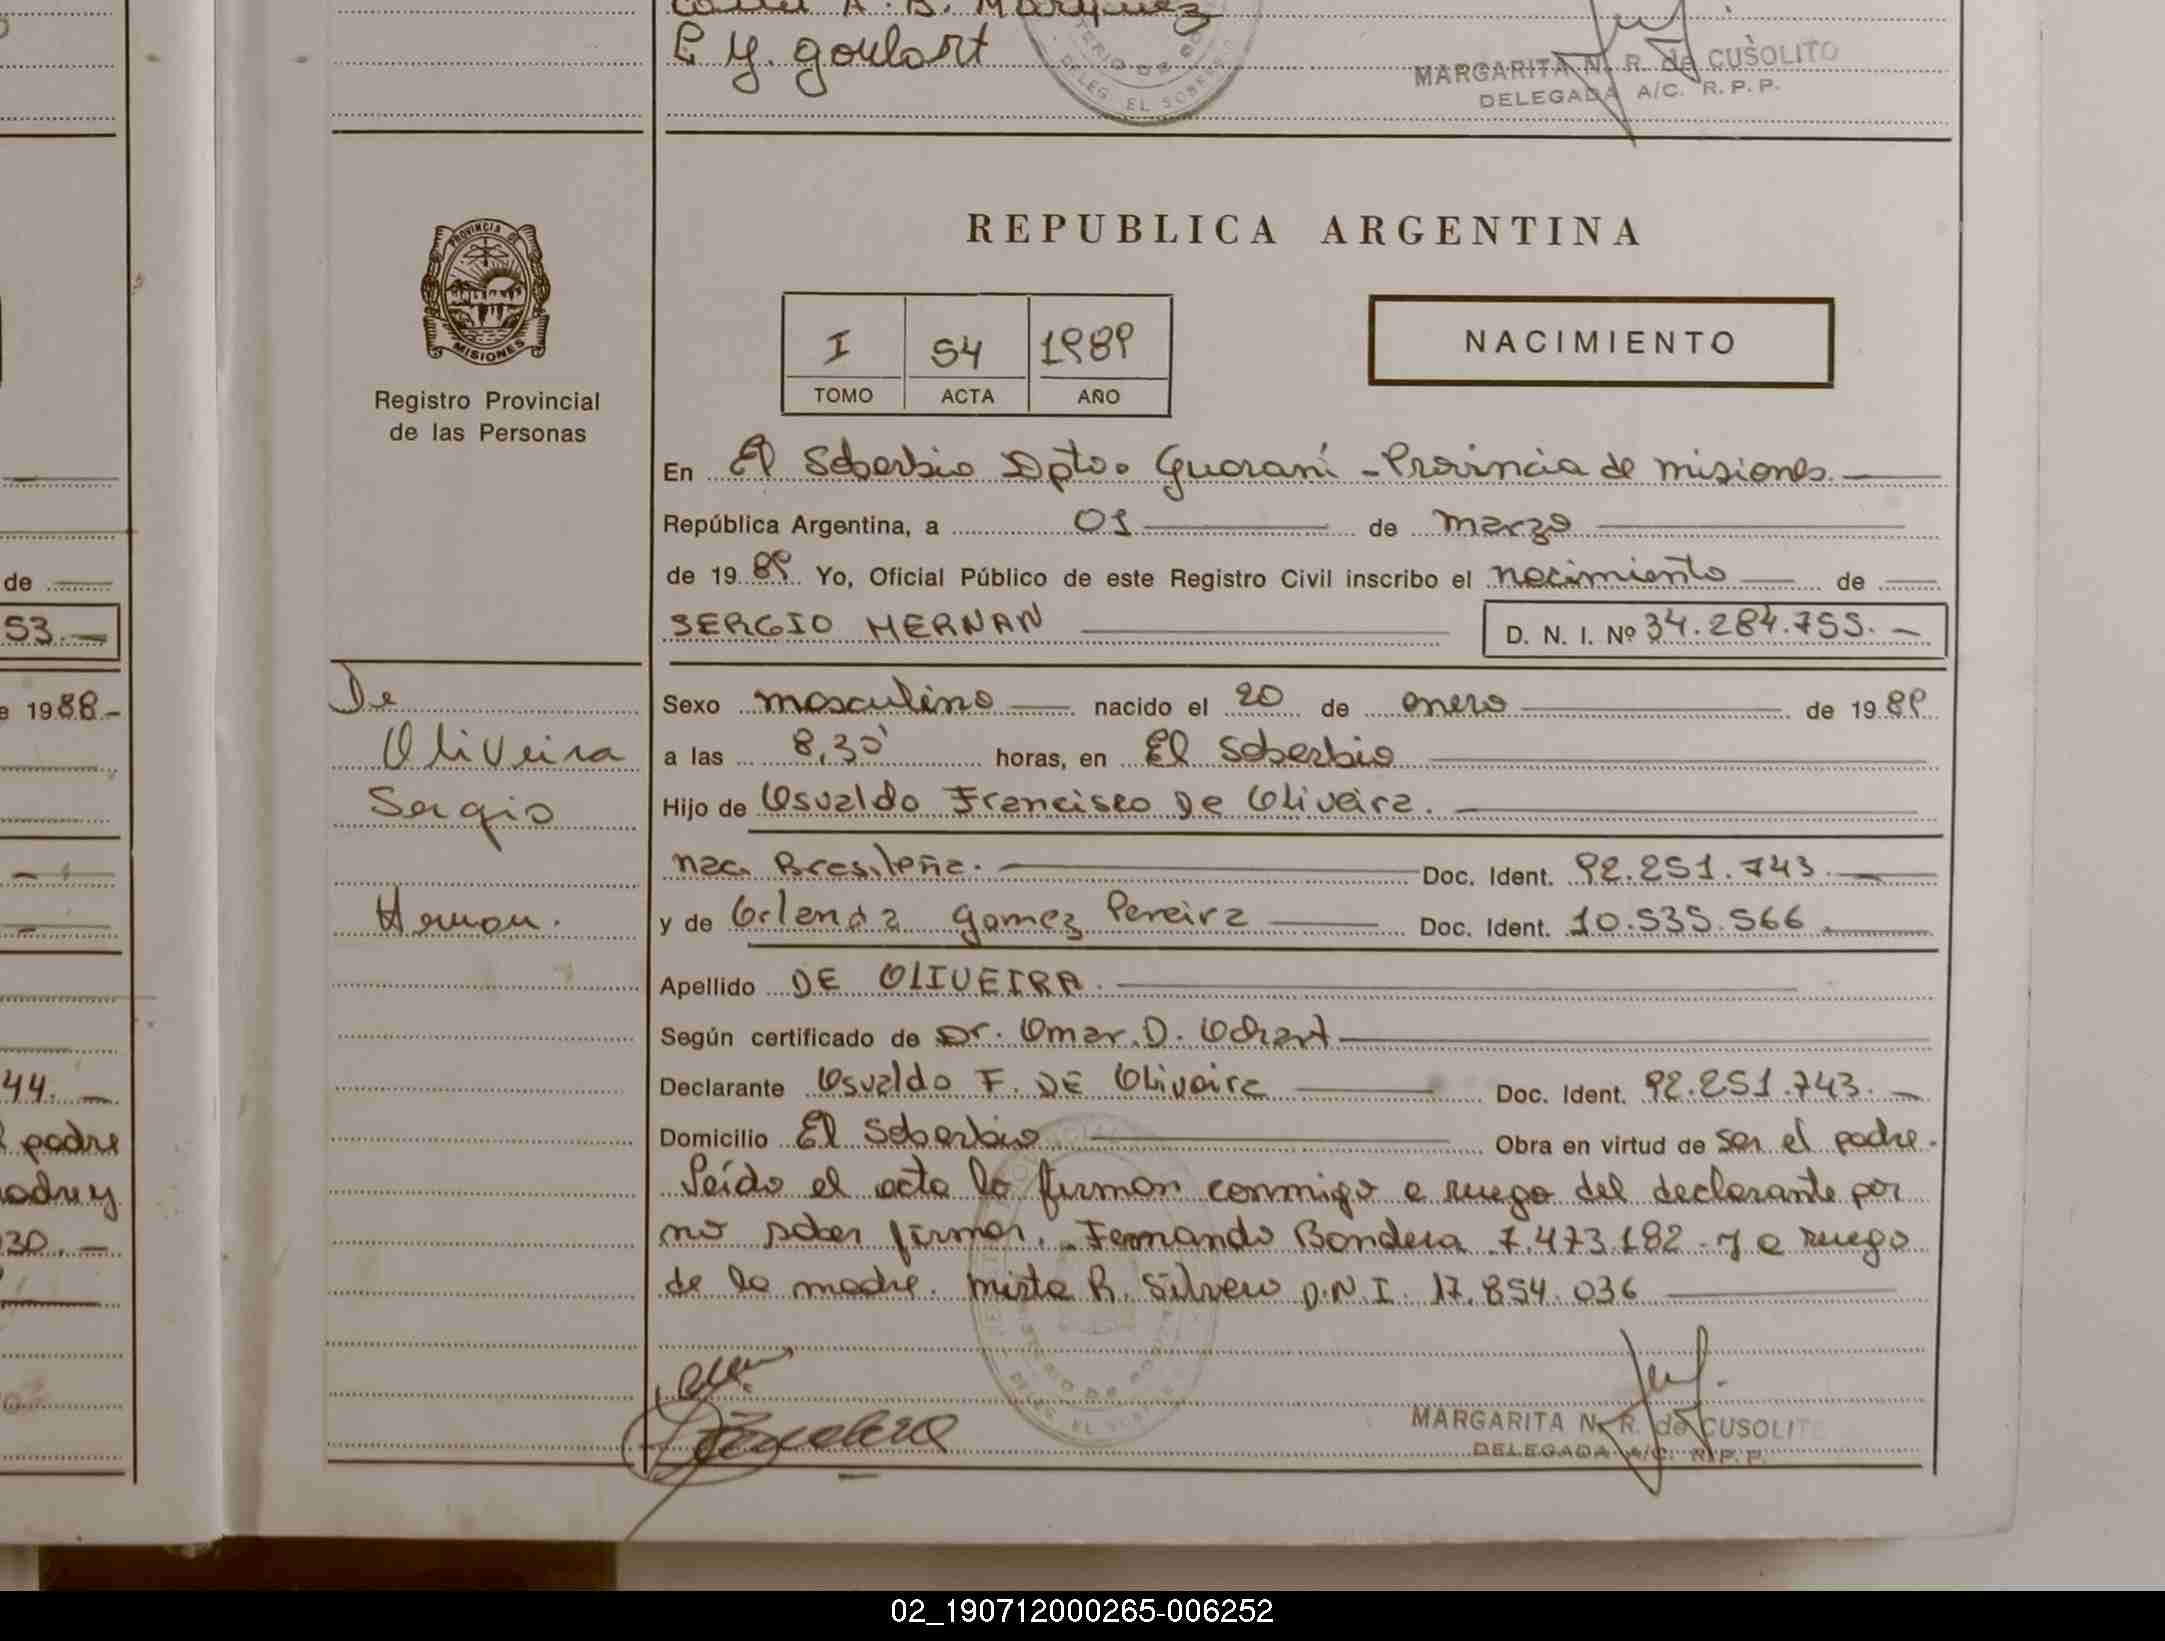 E y. goulart
MARGARITA N. R. de CUSOLITO
DELEGADA A/C. R. P. P.
DELEG. EL SOBERBIO
PROVINCIA DE
MISIONES
Registro Provincial
de las Personas
REPUBLICA ARGENTINA
I 54 1989
TOMO ACTA AÑO
NACIMIENTO
En El Soberbio Dpto. Guaraní - Provincia de misiones.
República Argentina, a 01 de marzo
de 1989 Yo, Oficial Público de este Registro Civil inscribo el nacimiento de
SERGIO HERNAN D. N. I. Nº 34.284.755.-
De
Oliveira
Sergio
Hernan.
Sexo masculino nacido el 20 de enero de 1989
a las 8,30' horas, en El Soberbio
Hijo de Osvaldo Francisco De Oliveira.
nac. Brasileña. Doc. Ident. 92.251.743.
y de Orlanda gomez Pereira Doc. Ident. 10.535.566.
Apellido DE OLIVEIRA.
Según certificado de Dr. Omar. D. Ochart
Declarante Osvaldo F. DE Oliveira Doc. Ident. 92.251.743.-
Domicilio El Soberbio Obra en virtud de ser el padre.
Leído el acta la firman conmigo a ruego del declarante por
no saber firmar. - Fernando Bondera 7.473.182 - y a ruego
de la madre. mirta R. Silvero D.N.I. 17.854.036
MARGARITA N. R. de CUSOLITO
DELEGADA A/C. R. P. P.
de
53.-
e 1988.-
44.-
padre
30.-
02_190712000265-006252